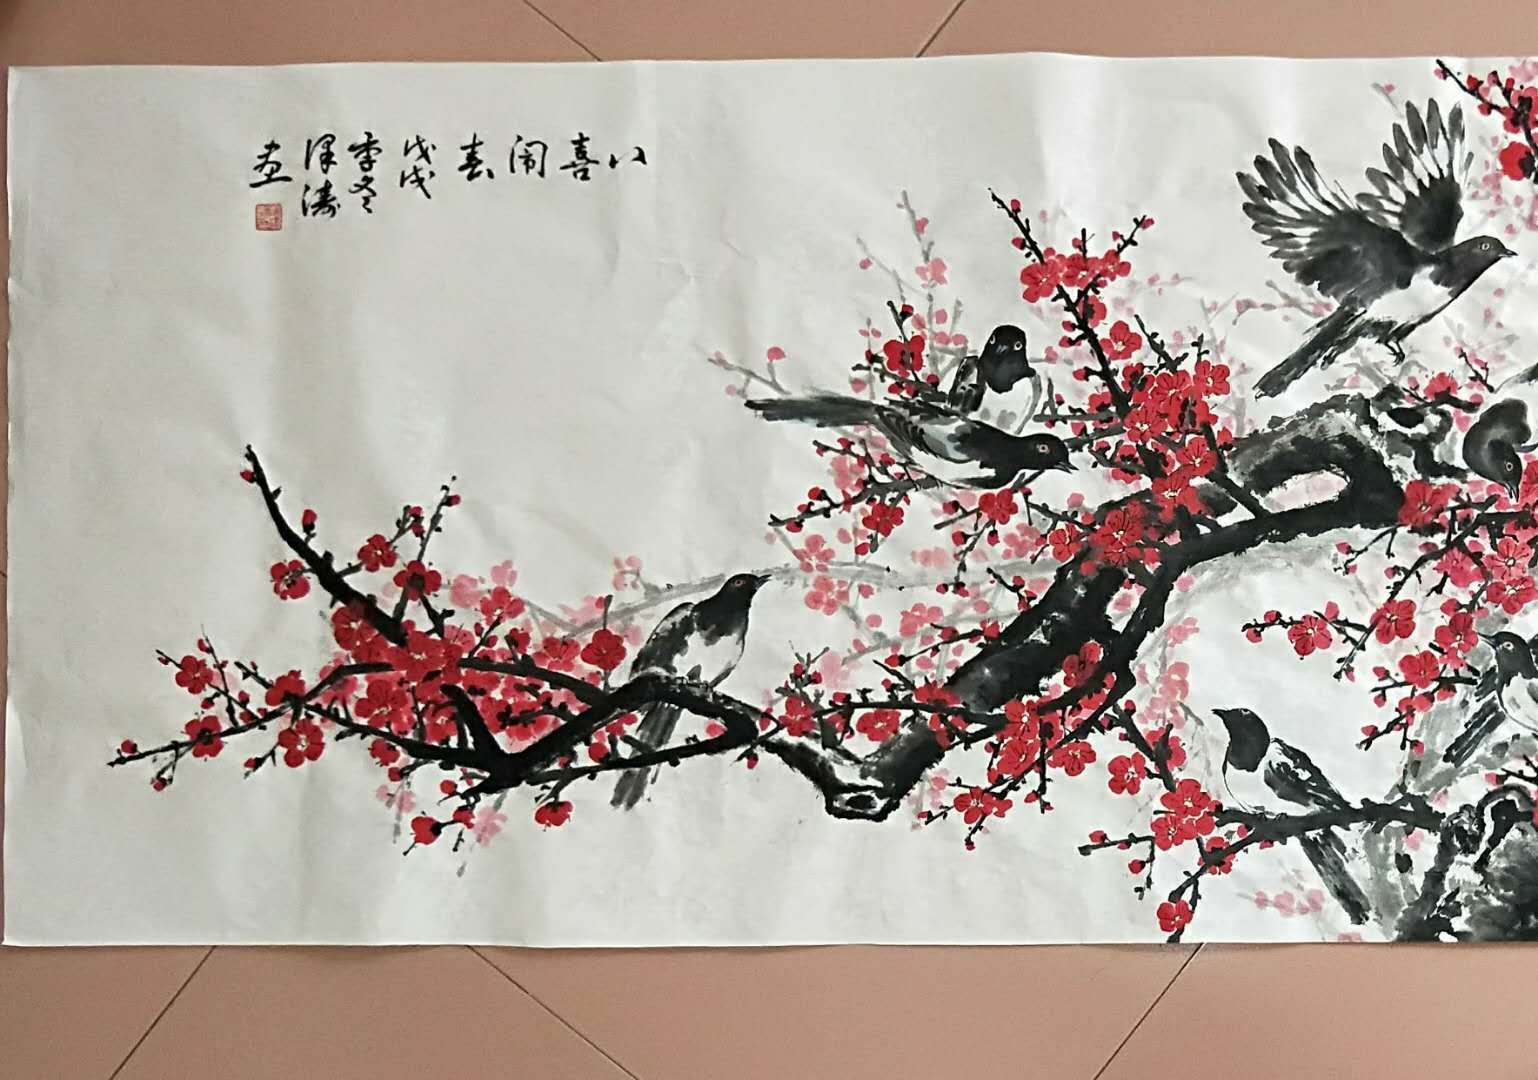 八喜闹春
戊戌
季冬
泽涛
画